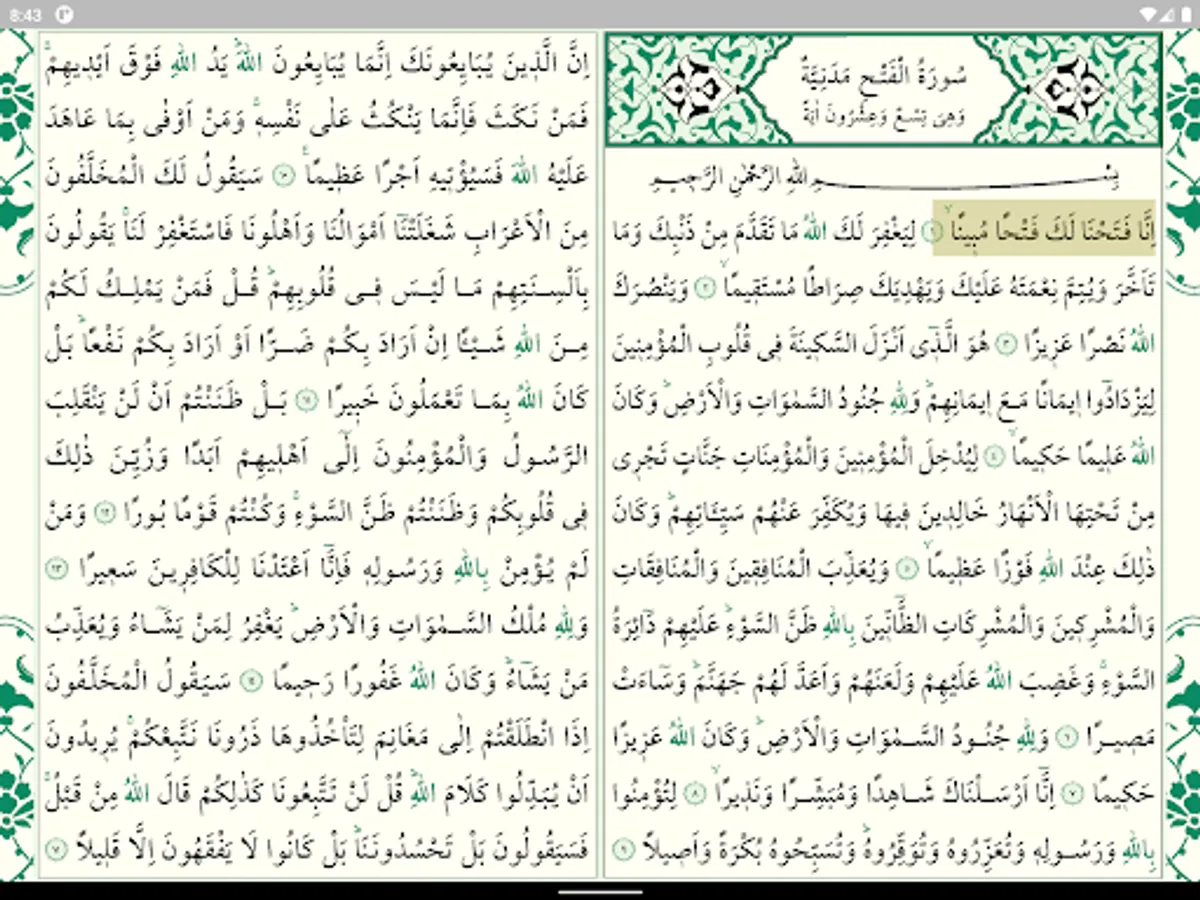 8:43
سُورَةُ الْفَتْحِ مَدَنِيَّةٌ
وَهِىَ تِسْعٌ وَعِشْرُونَ اٰيَةً
بِسْمِ اللهِ الرَّحْمٰنِ الرَّحِيمِ
اِنَّا فَتَحْنَا لَكَ فَتْحًا مُبِينًاۙ ﴿١﴾ لِيَغْفِرَ لَكَ اللهُ مَا تَقَدَّمَ مِنْ ذَنْبِكَ وَمَا
تَاَخَّرَ وَيُتِمَّ نِعْمَتَهُ عَلَيْكَ وَيَهْدِيَكَ صِرَاطًا مُسْتَقِيمًاۙ ﴿٢﴾ وَيَنْصُرَكَ
اللهُ نَصْرًا عَزِيزًا ﴿٣﴾ هُوَ الَّذِٓى اَنْزَلَ السَّكِينَةَ فِى قُلُوبِ الْمُؤْمِنِينَ
لِيَزْدَادُٓوا اِيمَانًا مَعَ اِيمَانِهِمْۜ وَلِلهِ جُنُودُ السَّمٰوَاتِ وَالْاَرْضِۜ وَكَانَ
اللهُ عَلِيمًا حَكِيمًاۙ ﴿٤﴾ لِيُدْخِلَ الْمُؤْمِنِينَ وَالْمُؤْمِنَاتِ جَنَّاتٍ تَجْرِى
مِنْ تَحْتِهَا الْاَنْهَارُ خَالِدِينَ فِيهَا وَيُكَفِّرَ عَنْهُمْ سَيِّـَٔاتِهِمْۜ وَكَانَ
ذٰلِكَ عِنْدَ اللهِ فَوْزًا عَظِيمًاۙ ﴿٥﴾ وَيُعَذِّبَ الْمُنَافِقِينَ وَالْمُنَافِقَاتِ
وَالْمُشْرِكِينَ وَالْمُشْرِكَاتِ الظَّٓانِّينَ بِاللهِ ظَنَّ السَّوْءِۜ عَلَيْهِمْ دَٓائِرَةُ
السَّوْءِۚ وَغَضِبَ اللهُ عَلَيْهِمْ وَلَعَنَهُمْ وَاَعَدَّ لَهُمْ جَهَنَّمَۜ وَسَٓاءَتْ
مَصِيرًا ﴿٦﴾ وَلِلهِ جُنُودُ السَّمٰوَاتِ وَالْاَرْضِۜ وَكَانَ اللهُ عَزِيزًا
حَكِيمًا ﴿٧﴾ اِنَّٓا اَرْسَلْنَاكَ شَاهِدًا وَمُبَشِّرًا وَنَذِيرًاۙ ﴿٨﴾ لِتُؤْمِنُوا
بِاللهِ وَرَسُولِهِ وَتُعَزِّرُوهُ وَتُوَقِّرُوهُۜ وَتُسَبِّحُوهُ بُكْرَةً وَاَصِيلًا ﴿٩﴾
اِنَّ الَّذِينَ يُبَايِعُونَكَ اِنَّمَا يُبَايِعُونَ اللهَۜ يَدُ اللهِ فَوْقَ اَيْدِيهِمْۚ
فَمَنْ نَكَثَ فَاِنَّمَا يَنْكُثُ عَلٰى نَفْسِهِۚ وَمَنْ اَوْفٰى بِمَا عَاهَدَ
عَلَيْهُ اللهَ فَسَيُؤْتِيهِ اَجْرًا عَظِيمًا۟ ﴿١٠﴾ سَيَقُولُ لَكَ الْمُخَلَّفُونَ
مِنَ الْاَعْرَابِ شَغَلَتْنَٓا اَمْوَالُنَا وَاَهْلُونَا فَاسْتَغْفِرْ لَنَاۚ يَقُولُونَ
بِاَلْسِنَتِهِمْ مَا لَيْسَ فِى قُلُوبِهِمْۜ قُلْ فَمَنْ يَمْلِكُ لَكُمْ
مِنَ اللهِ شَيْـًٔا اِنْ اَرَادَ بِكُمْ ضَرًّا اَوْ اَرَادَ بِكُمْ نَفْعًاۜ بَلْ
كَانَ اللهُ بِمَا تَعْمَلُونَ خَبِيرًا ﴿١١﴾ بَلْ ظَنَنْتُمْ اَنْ لَنْ يَنْقَلِبَ
الرَّسُولُ وَالْمُؤْمِنُونَ اِلٰٓى اَهْلِيهِمْ اَبَدًا وَزُيِّنَ ذٰلِكَ
فِى قُلُوبِكُمْ وَظَنَنْتُمْ ظَنَّ السَّوْءِۚ وَكُنْتُمْ قَوْمًا بُورًا ﴿١٢﴾ وَمَنْ
لَمْ يُؤْمِنْ بِاللهِ وَرَسُولِهِ فَاِنَّٓا اَعْتَدْنَا لِلْكَافِرِينَ سَعِيرًا ﴿١٣﴾
وَلِلهِ مُلْكُ السَّمٰوَاتِ وَالْاَرْضِۜ يَغْفِرُ لِمَنْ يَشَٓاءُ وَيُعَذِّبُ
مَنْ يَشَٓاءُۜ وَكَانَ اللهُ غَفُورًا رَحِيمًا ﴿١٤﴾ سَيَقُولُ الْمُخَلَّفُونَ
اِذَا انْطَلَقْتُمْ اِلٰى مَغَانِمَ لِتَأْخُذُوهَا ذَرُونَا نَتَّبِعْكُمْۚ يُرِيدُونَ
اَنْ يُبَدِّلُوا كَلَامَ اللهِۜ قُلْ لَنْ تَتَّبِعُونَا كَذٰلِكُمْ قَالَ اللهُ مِنْ قَبْلُۚ
فَسَيَقُولُونَ بَلْ تَحْسُدُونَنَاۜ بَلْ كَانُوا لَا يَفْقَهُونَ اِلَّا قَلِيلًا ﴿١٥﴾